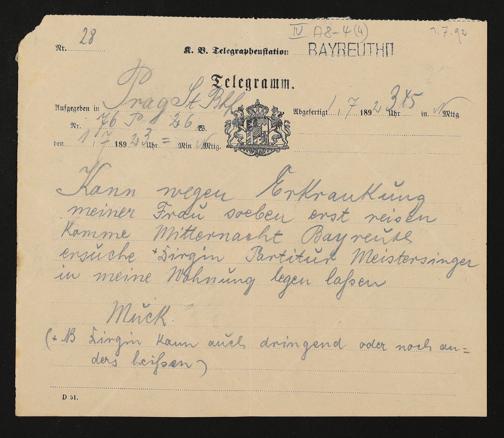 IV A8-4(4) 1.7.92
Nr. 28 K. B. Telegraphenstation BAYREUTH II
Telegramm.
Aufgegeben in Prag St Bhf Abgefertigt 1/7 1892 3 45 Uhr in N Mttg
Nr. 76 P 26 W.
den 1/7 1892 3 Uhr = Min N Mttg.
Kann wegen Erkrankung
meiner Frau soeben erst reisen
komme Mitternacht Bayreuth
ersuche *Dirgin Partitur Meistersinger
in meine Wohnung legen laßen
Muck.
(* NB Dirgin kann auch dringend oder noch an=
ders heißen)
D 51.